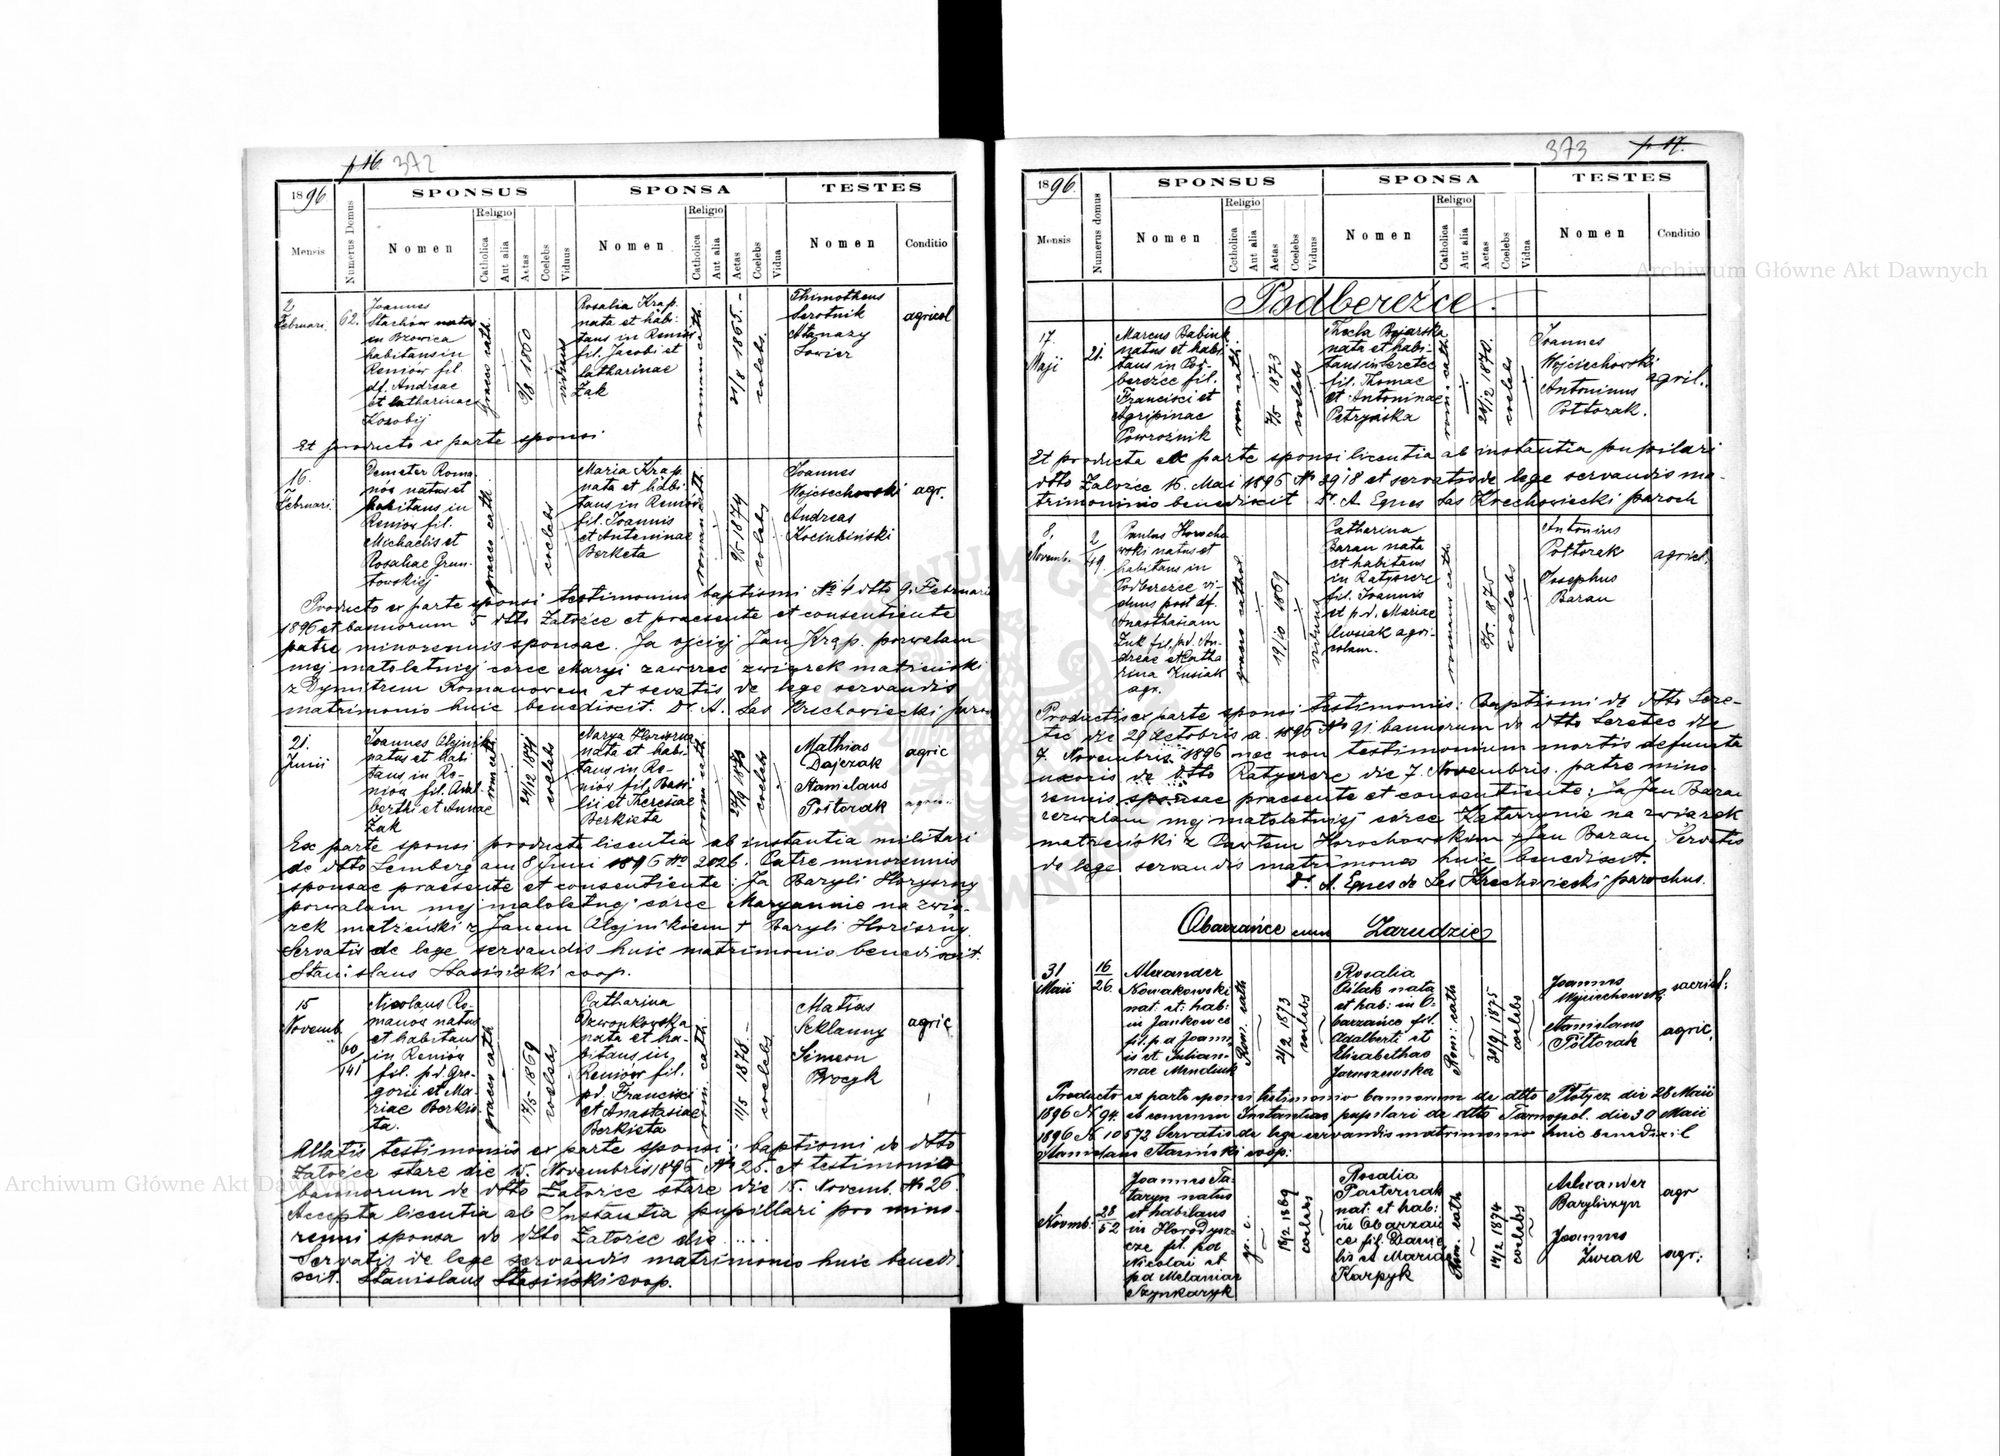 p 16. 372
1896.
SPONSUS
SPONSA
TESTES
Mensis
Numerus Domus
Nomen
Religio
Catholica
Aut alia
Aetas
Coelebs
Viduus
Nomen
Religio
Catholica
Aut alia
Aetas
Coelebs
Vidua
Nomen
Conditio
2
Februari.
62.
Joannes
Stachów natus
in Bzovica
habitans in
Reniów fil.
df. Andreae
et Catharinae
Kosobij
graeco cath.
1860
viduus
Rosalia Krąp.
nata et habi-
tans in Reniów
fil. Jacobi et
Catharinae
Żak
roman cath.
21/8 1865.-
coelebs.
Thimotheus
Serotnik
Atanazy
agricol
Et producto ex parte sponsi
16.
Februari.
Demeter Roma-
nów natus et
habitans in
Reniów fil.
Michaelis et
Rosaliae Grun-
towskiej
graeco cath.
coelebs
Maria Krąp.
nata et habi-
tans in Reniów
fil. Joannis
et Antoninae
Berketa
roman cath.
9/5 1874
coelebs
Joannes
Wojciechowski
Andreas
Kociubiński
agr.
Producto ex parte sponsi testimonius baptismi No 4 dtto 9. Februari
1896 et bannorum 5 dtto Załoźce et praesente et consentiente
patre minorennis sponsae. Ja ojciej Jan Krąp. pozwalam
mej małoletniej córce Maryi zawrzeć związek małżeński
z Dymitrem Romanowem et sevatis de lege servandis
matrimonio huic benedixit. Dr. A. Las Krechowiecki paroch
21.
Junii
Joannes Olejnik
natus et habi
tans in Re-
niów fil. Adal
berti et Annae
Żak
rom cath
24/12 1871
coelebs
Marya Horiszna
nata et habi-
tans in Re-
niów fil. Basi-
lii et Theresiae
Berkieta
rom cath
27/9 1873
coelebs
Mathias
Dajczak
Stanislaus
Połtorak
agric
agric.
Ex parte sponsi producta licentia ab instantia militari
de dtto Lemberg am 8 Juni 1896 No 2026. Patre minorennis
sponsae praesente et consentiente: Ja Bazyli Horyszny
pozwalam mej małoletniej córce Maryannie na zwią-
zek małżeński z Janem Olejnikiem + Bazyli Horiszny.
Servatis de lege servandis huic matrimonio benedixit.
Stanislaus Stasiński coop.
15
Novemb.
60/141
Nicolaus Ro-
manow natus
et habitans
in Reniów
fil. p.d. Gre-
gorii et Ma-
riae Berkie
ta.
graeco cath
17/5 1869
coelebs
Catharina
Dzwonkowska
nata et ha-
bitans in
Reniów fil.
p.d. Francisci
et Anastasiae
Berkieta
rom. cath.
11/5 1878-
coelebs
Matias
Seklanny
Simeon
Brocyk
agric
Allatis testimoniis ex parte sponsi: baptismi de dtto
Załoźce stare die 15. Novembris 1896 No 28. et testimonio
bannorum de dtto Załoźce stare die 15. Novemb. No 26.
Accepta licentia ab Instantia pupillari pro mino-
renni sponsa do dtto Załoźec die.....
Servatis de lege servandis matrimonio huic benedi-
xit. Stanislaus Stasiński coop.
373 p 17.
1896.
SPONSUS
SPONSA
TESTES
Mensis
Numerus domus
Nomen
Religio
Catholica
Aut alia
Aetas
Coelebs
Viduus
Nomen
Religio
Catholica
Aut alia
Aetas
Coelebs
Vidua
Nomen
Conditio
Podbereźce
17.
Maji
21.
Marcus Babiuk
natus et habi
tans in Pod-
bereźce fil.
Francisci et
Agripinae
Powroźnik
rom cath.
7/5 1873
coelebs
Thecla Bojarska
nata et habi-
tans in Seretec
fil. Thomae
et Antoninae
Petryńska
rom. cath
24/12 1870.
coelebs
Joannes
Wojciechowski
Antonius
Połtorak.
agril.
Et producta ex parte sponsi licentia ab instantia pupilari
dtto Załoźce 16. Mai 1896 No 2918 et servatis de lege servandis ma-
trimonio benedixit Dr. A. Egnes Las Krechowiecki paroch
8.
Novemb.
2/49.
Paulus Horocho
wski natus et
habitans in
Podbereźce vi-
duus post df.
Anasthasiam
Żuk fil. pd. An-
dreae et Catha
rina Kusiak
agr.
graeco cathol
19/10 1869
viduus
Catherina
Baran nata
et habitans
in Ratyszcze
fil. Joannis
et p.d. Mariae
agri-
colam.
romano cath
8/5. 1875
coelebs
Antonius
Połtorak
Josephus
Baran
agricl.
Productis ex parte sponsi testimoniis: baptismi de dtto Sere-
tec die 29 Octobris a. 1896 No 91. bannorum de dtto Seretec die
7. Novembris 1896 nec non testimonium mortis defuncta
uxoris de dtto Ratyszcze die 7. Novembris. patre mino-
rennis sponsae praesente et consentiente: Ja Jan Baran
zezwalam mej małoletniej córce Katarzynie na związek
małżeński z Pawłem Horochowskim + Jan Baran, Servatis
de lege servandis matrimonio huic benedixit.
Dr. A. Egnes de Las Krechowiecki parochus.
Obarzańce cum Zarudzie
31
Maii
16/26
Alexander
Nowakowski
nat. et: hab:
in Jankowce
fil. p d Joann
is et Julian-
nae Mendiuk
Rom: cath
2/2 1873
coelebs
Rosalia
Oślak nata
et hab: in O-
barzańce fil.
Adalberti et
Elisabethae
Jaroszewska
Rom: cath
30/9 1875
coelebs
Joannes
Wojciechowski
Stanislaus
Półtorak
sacrist:
agric.
Producto ex parte sponsi testimonio bannorum de dtto Płotycz die 28 Maii
1896 N 94. et consensu Instantiae pupilari de dtto Tarnopol. die 30 Maii
1896 N 10572 Servatis de lege servandis matrimonio huic benedixit
Stanislaus Stasiński coop:
Novmb.
28/52
Joannes Ta-
taryn natus
et habitans
in Horodysz-
cze fil. pd
Nicolai et
pd Melaniae
Szynkaryk
gr. c.
1869
coelebs
Rosalia
Pasternak
nat. et hab:
in Obarzań
ce fil. Danie
lis et Mariae
Karpyk
Rom. cath
14/2 1874
coelebs
Alexander
Joannes
Żurak
agr
agr:
Archiwum Główne Akt Dawnych
Archiwum Główne Akt Dawnych